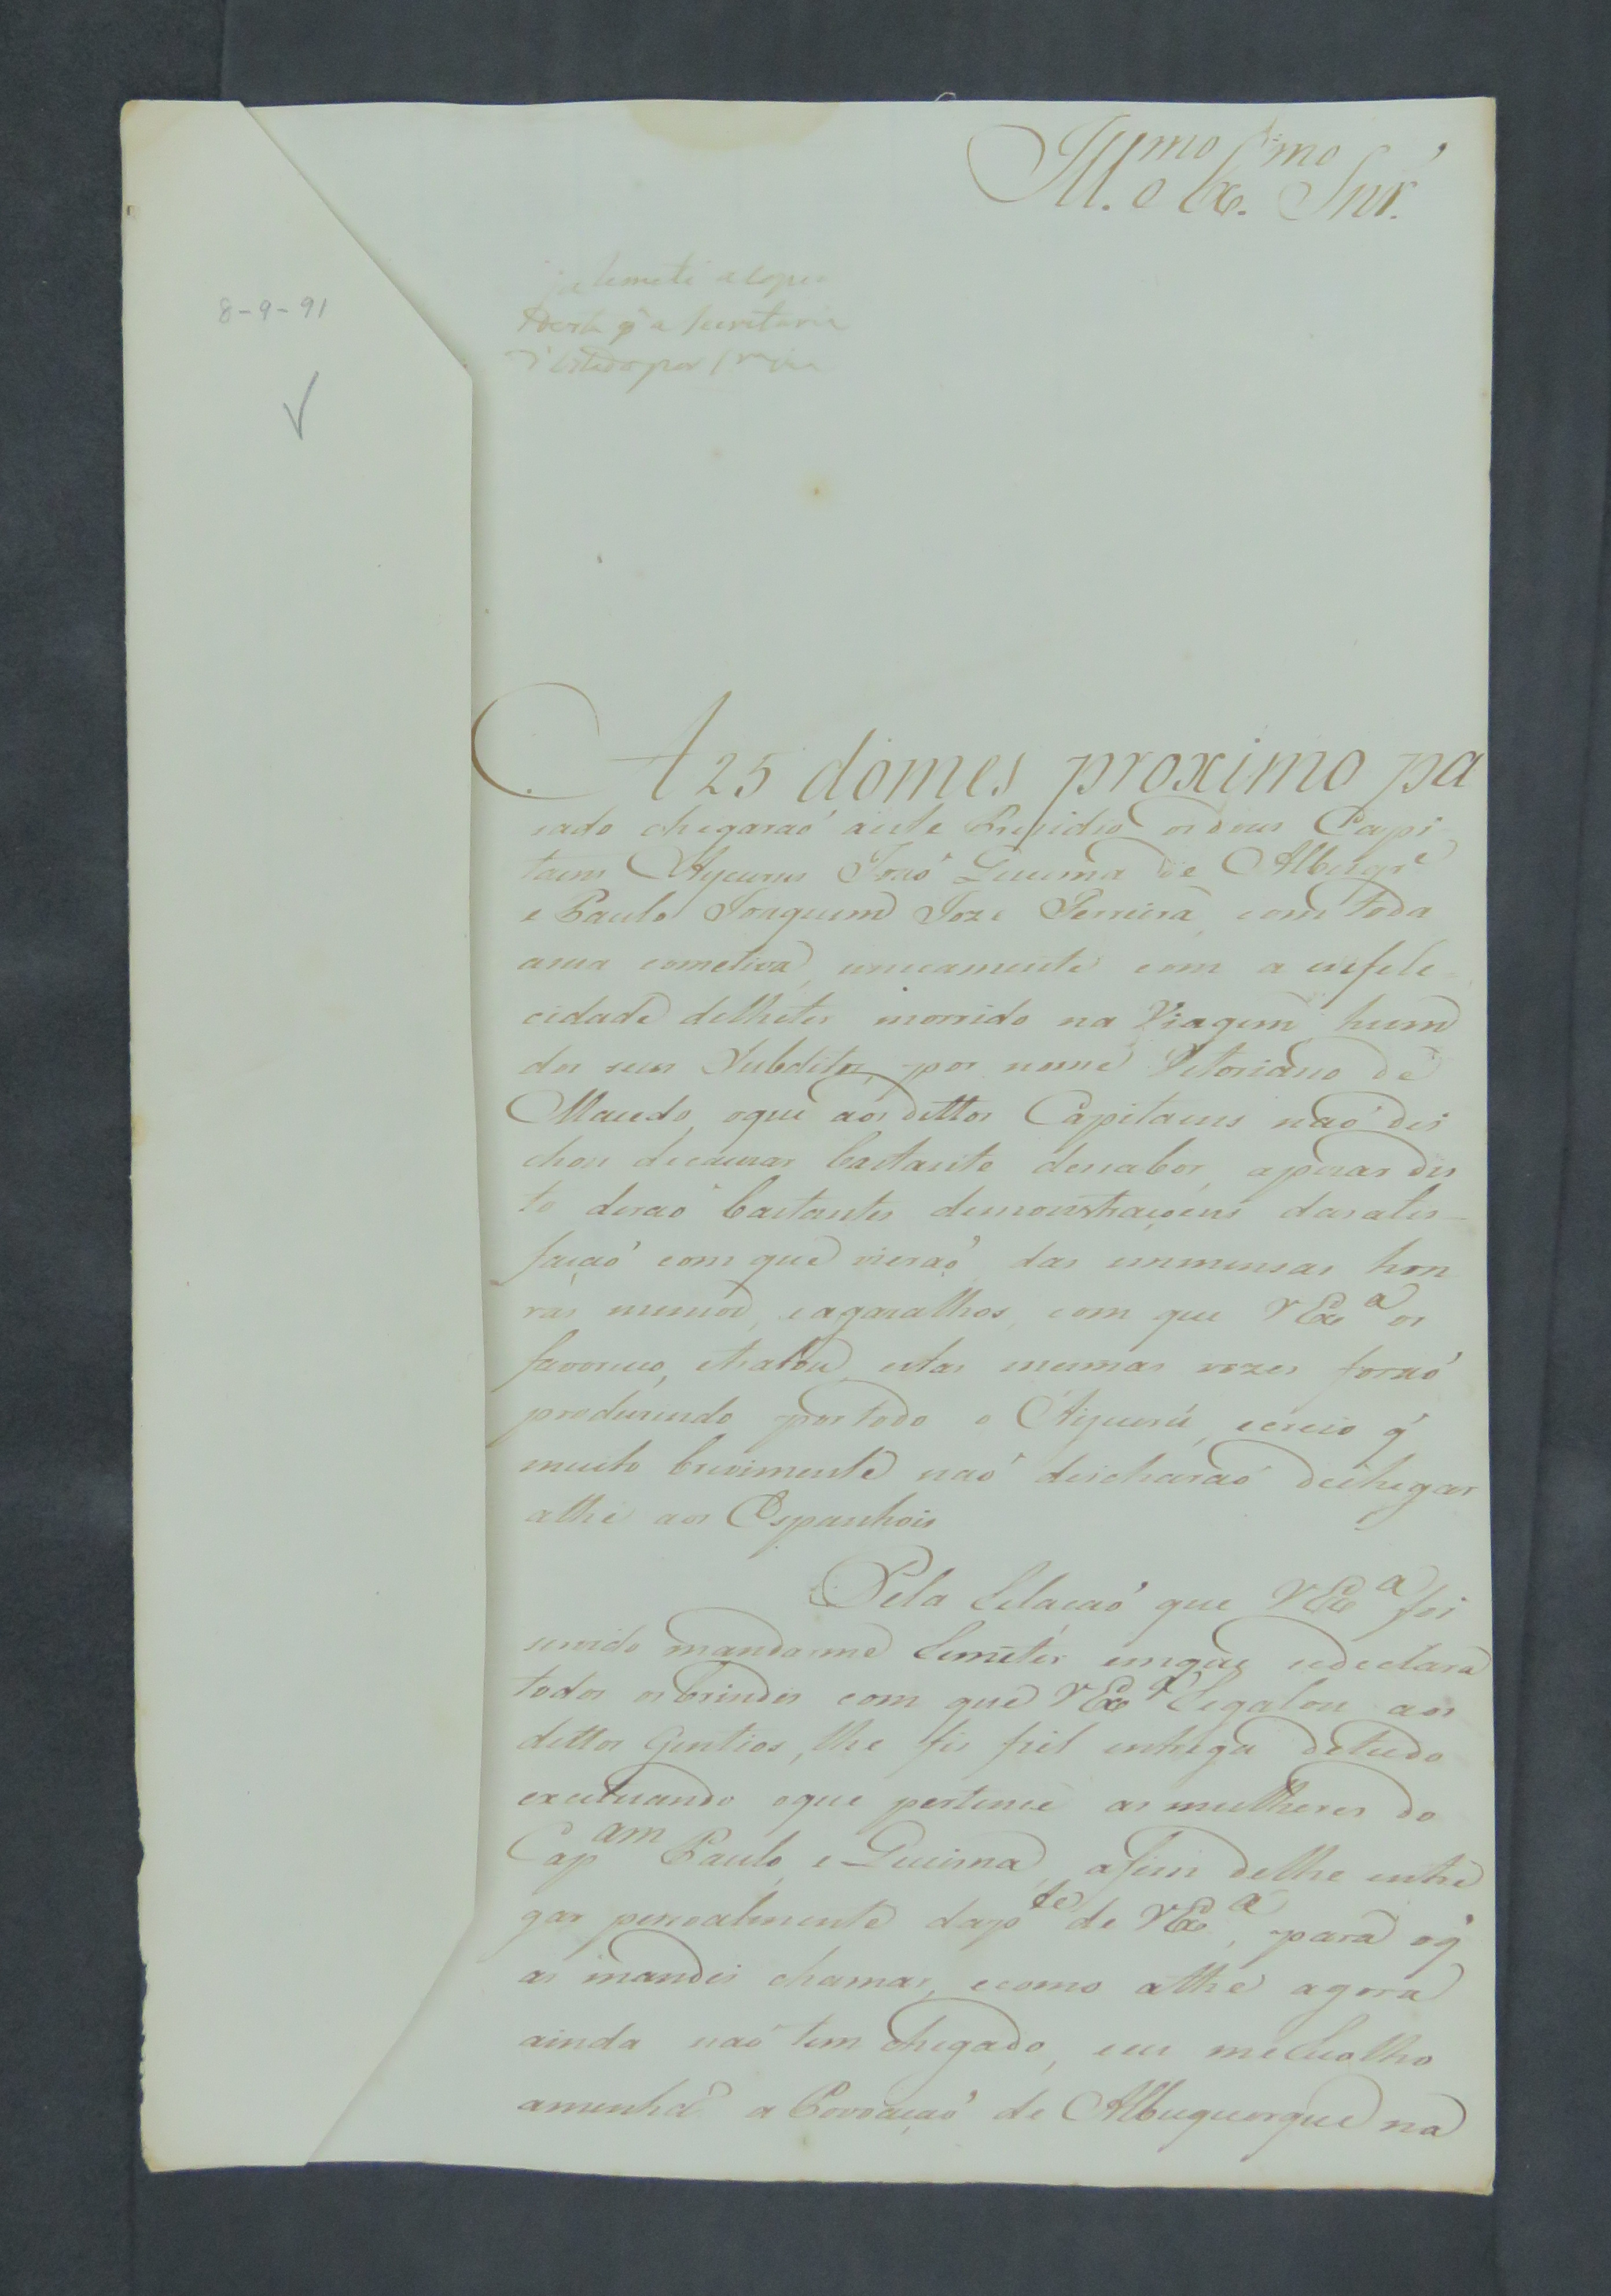 Ill.mo e Ex.mo Snr.
8-9-91
já Remeti a copia
desta pª a Secretaria
A 25 domes proximo pa
sado chegaraó aeste Presidio os dous Capi
taens Aycurus Joaó Queima de Albuqr.e
e Paulo Joaquim Joze Ferreira, com toda
asua cometiva, unicamente com a infele
cidade delheter morrido na Viagem hum
dos seus Subditos, por nome Vitoriano de
Macedo, oque aos dittos Capitaens naó dei
chou decauzar bastante desabor, apezar dis
to deraó bastantes demonstraçoens dasatis-
façaó com que vieraó das immensas hon
ras mimos, eagazalhos, com que V Ex.a os
favoreceo, etratou, estas mesmas vozes foraó
produzindo portodo o Aycurú, ecreio q'
muito brevimente naó deicharaó dechegar
athe aos Espanhois
Pela Relaçaó que V Ex.a foi
servido mandarme Remeter emque sedeclara
todos osbrindes com que V Ex.a Regalou aos
dittos Gentios, lhe fis fiel entrega detudo
excetuando oque pertence as mulheres do
Cap.am Paulo, e Queima, afim delhe entre
gar pesoalmente dap.te de V Ex.a, para oq'
as mandei chamar, ecomo athe agora
ainda naó tem chegado, eeu meRecolho
amenhã a Povoaçaó de Albuquerque na